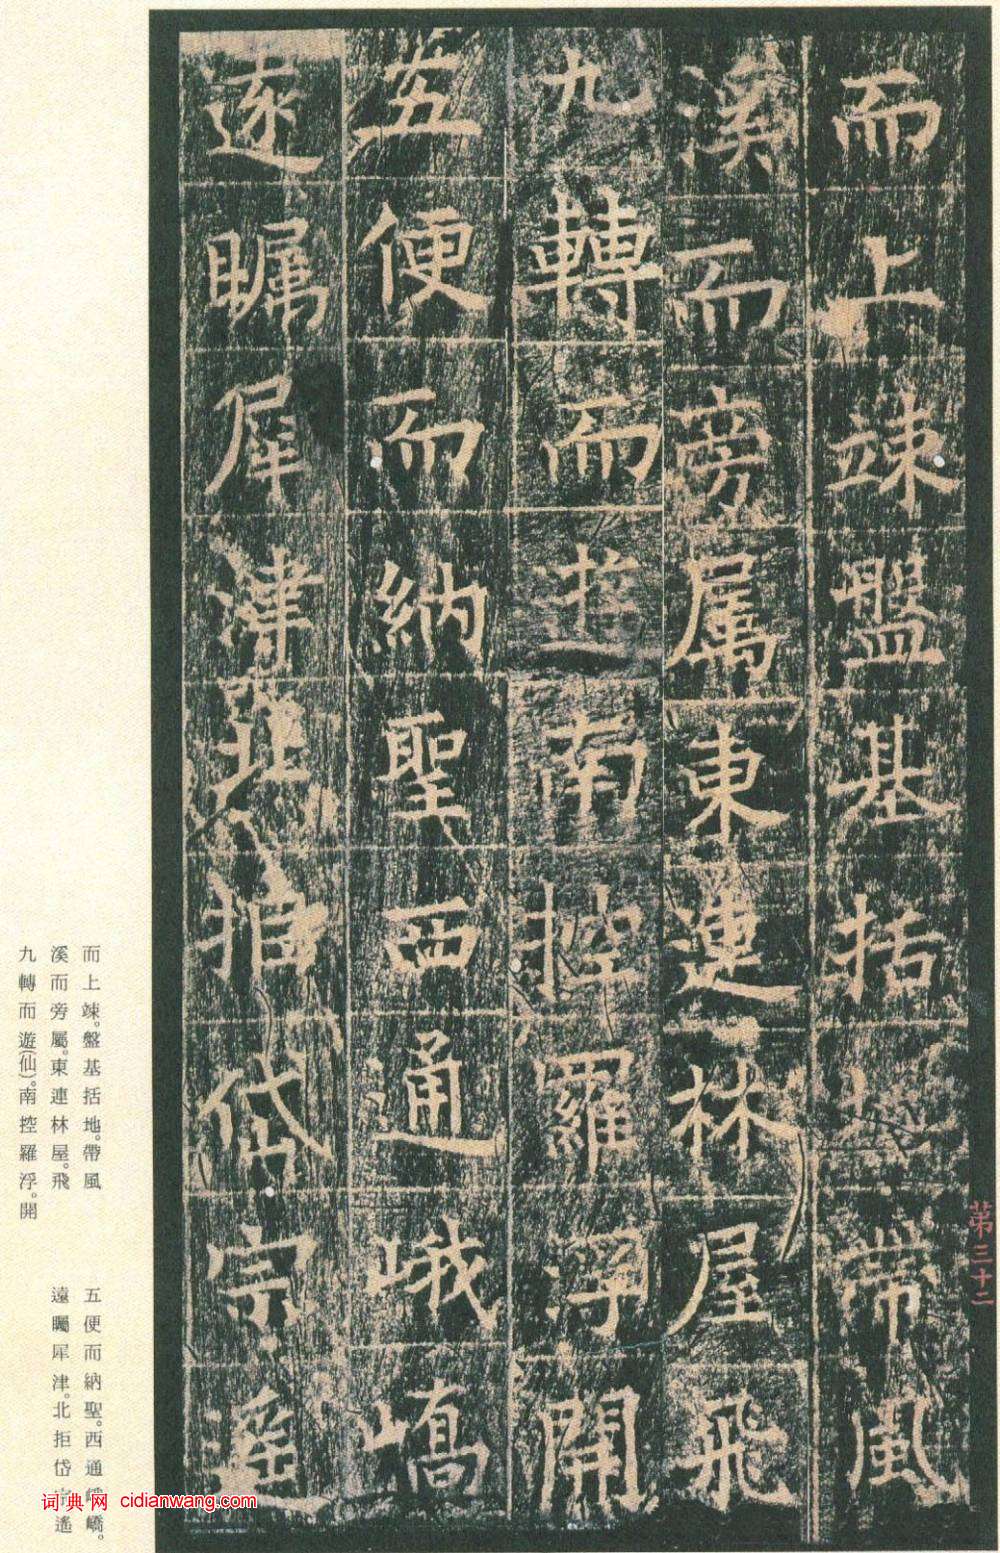 而上竦盤基括地帶風
溪而旁屬東連林屋飛
九轉而遊南控羅浮開
五便而納聖西通峨嶠
遠矚犀津北拒岱宗遙
第三十二
而上竦。盤基括地。帶風
溪而旁屬。東連林屋。飛
九轉而遊(仙)。南控羅浮。開
五便而納聖。西通峨嶠。
遠矚犀津。北拒岱宗遙
词典网 cidianwang.com